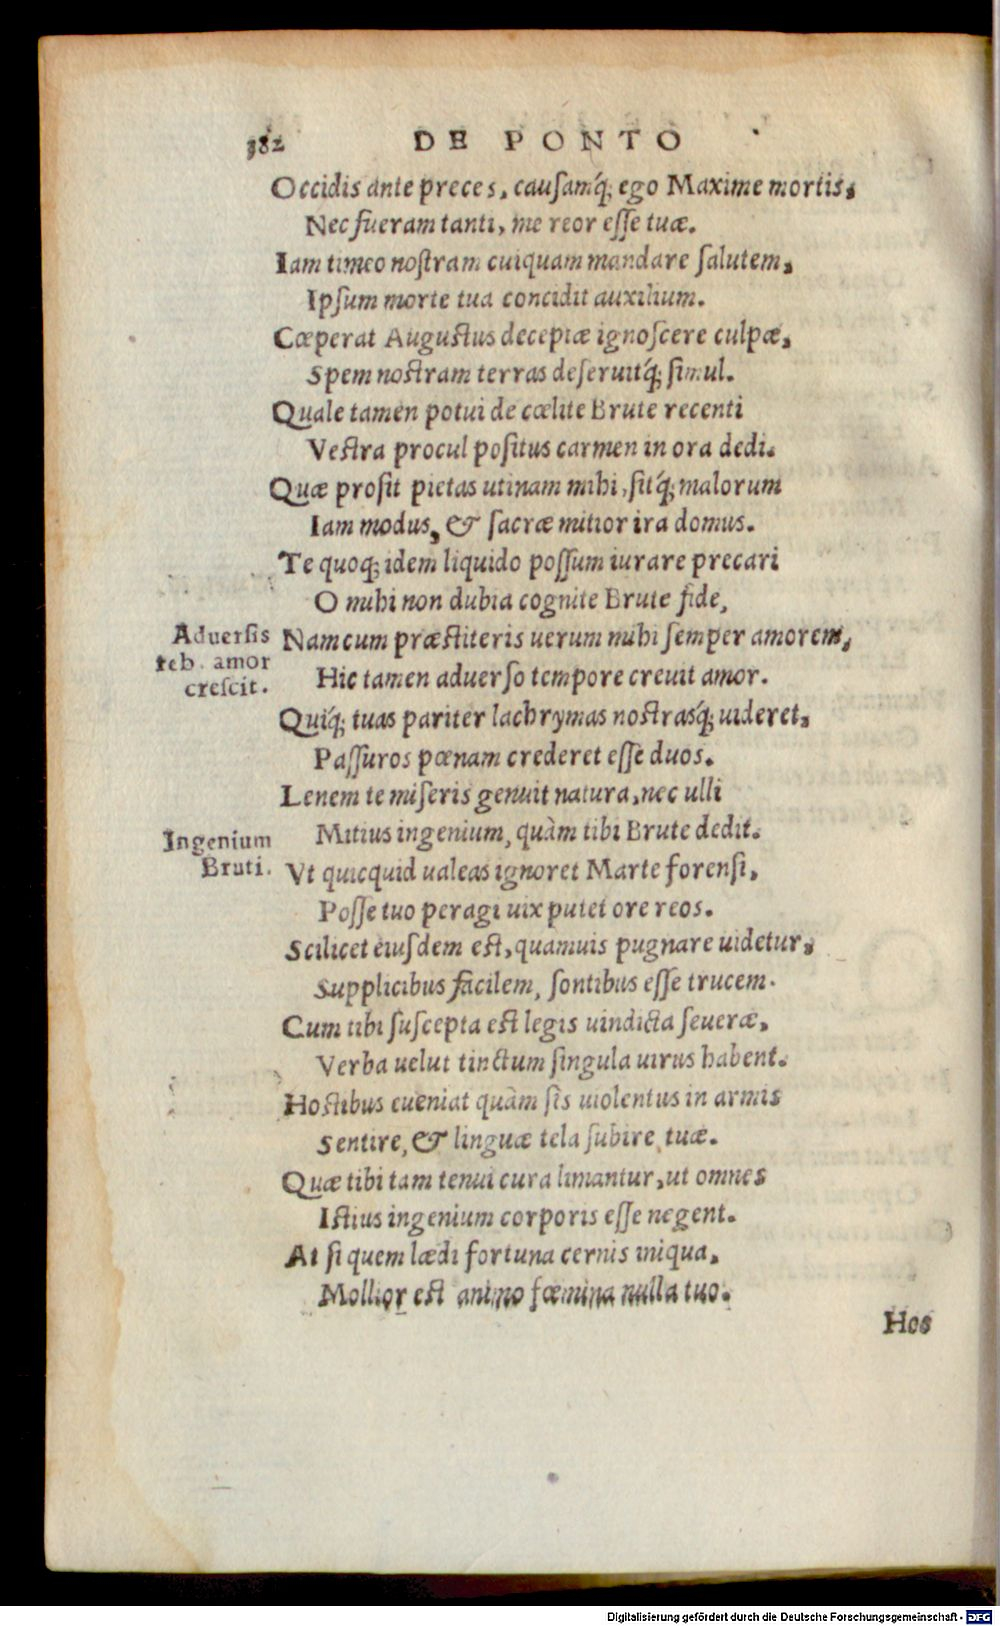 382 DE PONTO
Occidis ante preces, causamq́; ego Maxime mortis,
Nec fueram tanti, me reor esse tuæ.
Iam timeo nostram cuiquam mandare salutem,
Ipsum morte tua concidit auxilium.
Cœperat Augustus deceptæ ignoscere culpæ,
Spem nostram terras deseruitq́; simul.
Quale tamen potui de cœlite Brute recenti
Vestra procul positus carmen in ora dedi.
Quæ prosit pietas utinam mihi, sitq́; malorum
Iam modus, & sacræ mitior ira domus.
Te quoq; idem liquido possum iurare precari
O mihi non dubia cognite Brute fide,
Adversis
reb. amor
crescit.
Nam cum præstiteris uerum mihi semper amorem,
Hic tamen aduerso tempore creuit amor.
Quiq́; tuas pariter lachrymas nostrasq́; uideret,
Passuros pœnam crederet esse duos.
Lenem te miseris genuit natura, nec ulli
Mitius ingenium, quàm tibi Brute dedit.
Ingenium
Bruti.
Vt quicquid ualeas ignoret Marte forensi,
Posse tuo peragi uix putet ore reos.
Scilicet eiusdem est, quamuis pugnare uidetur,
Supplicibus facilem, sontibus esse trucem.
Cum tibi suscepta est legis uindicta seueræ,
Verba uelut tinctum singula uirus habent.
Hostibus eueniat quàm sis uiolentus in armis
Sentire, & linguæ tela subire tuæ.
Quæ tibi tam tenui cura limantur, ut omnes
Istius ingenium corporis esse negent.
At si quem lædi fortuna cernis iniqua,
Mollior est animo fœmina nulla tuo.
Hos
Digitalisierung gefördert durch die Deutsche Forschungsgemeinschaft - DFG